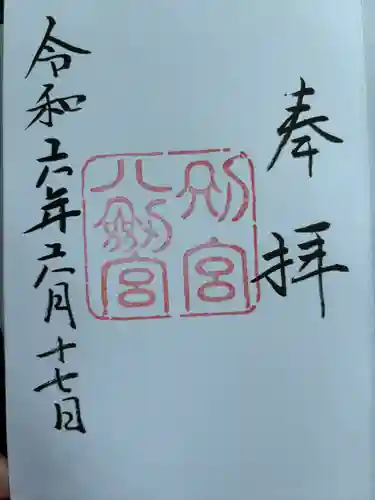 奉拝
別宮
八劔宮
令和六年六月十七日